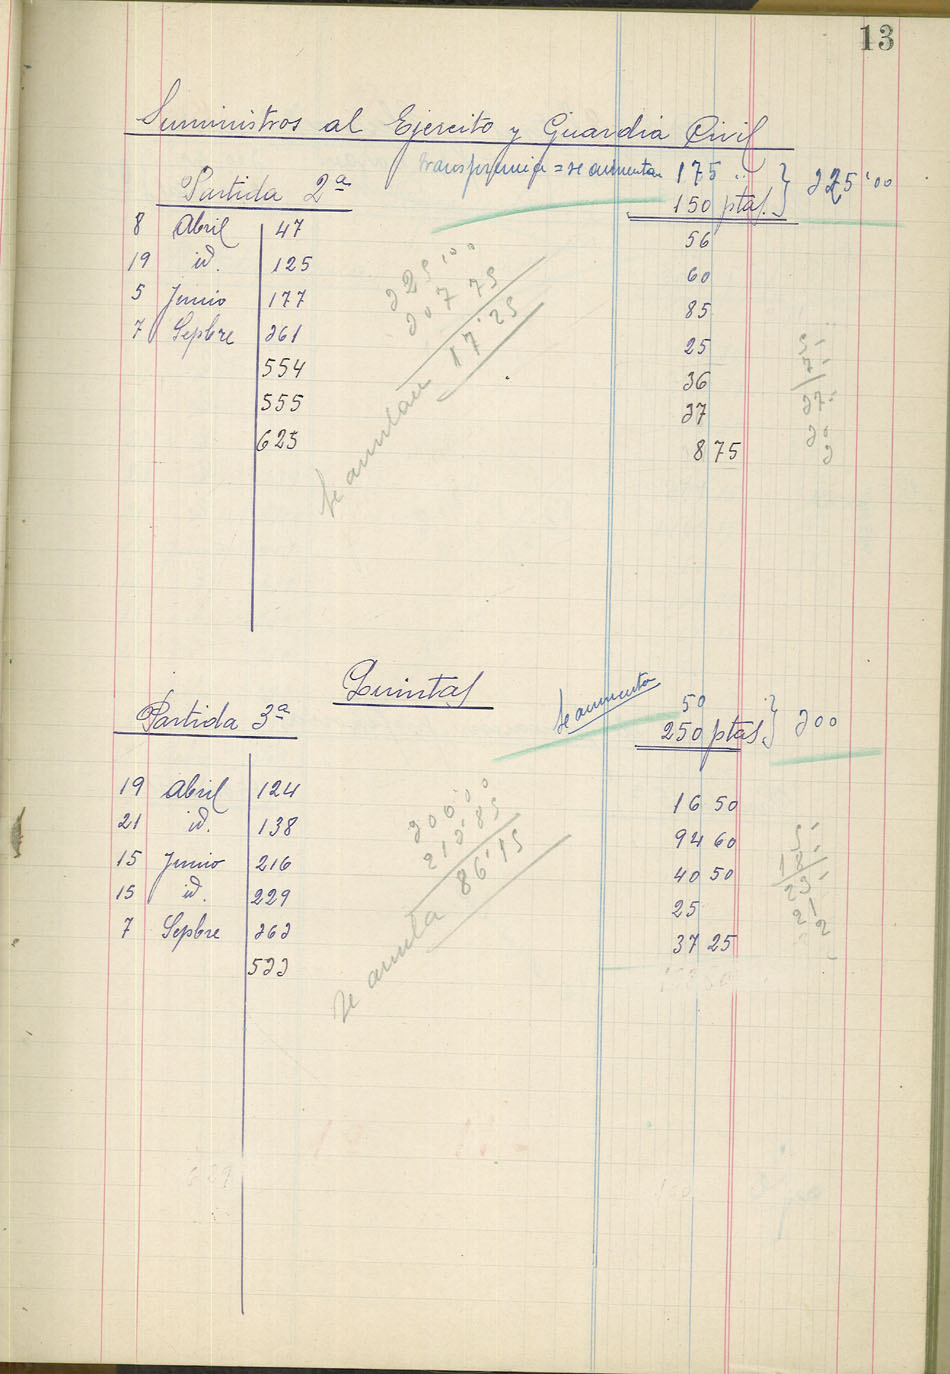 13
Suministros al Ejercito y Guardia Civil
se aumentan 175 "
Partida 2ª 150 ptas. } 325'00
8 Abril 47 56
19 id. 125 60
5 Junio 177 85
7 Sepbre 261 25
554 36
555 37
625 8 75
325'00
307 75
17'25
Se anulan
Quintas
Se aumenta 50
Partida 3ª 250 ptas. } 300
19 Abril 124 16 50
21 id. 138 94 60
15 Junio 216 40 50
15 id. 229 25
7 Sepbre 262 37 25
522
300'00
213'85
86'15
Se anula